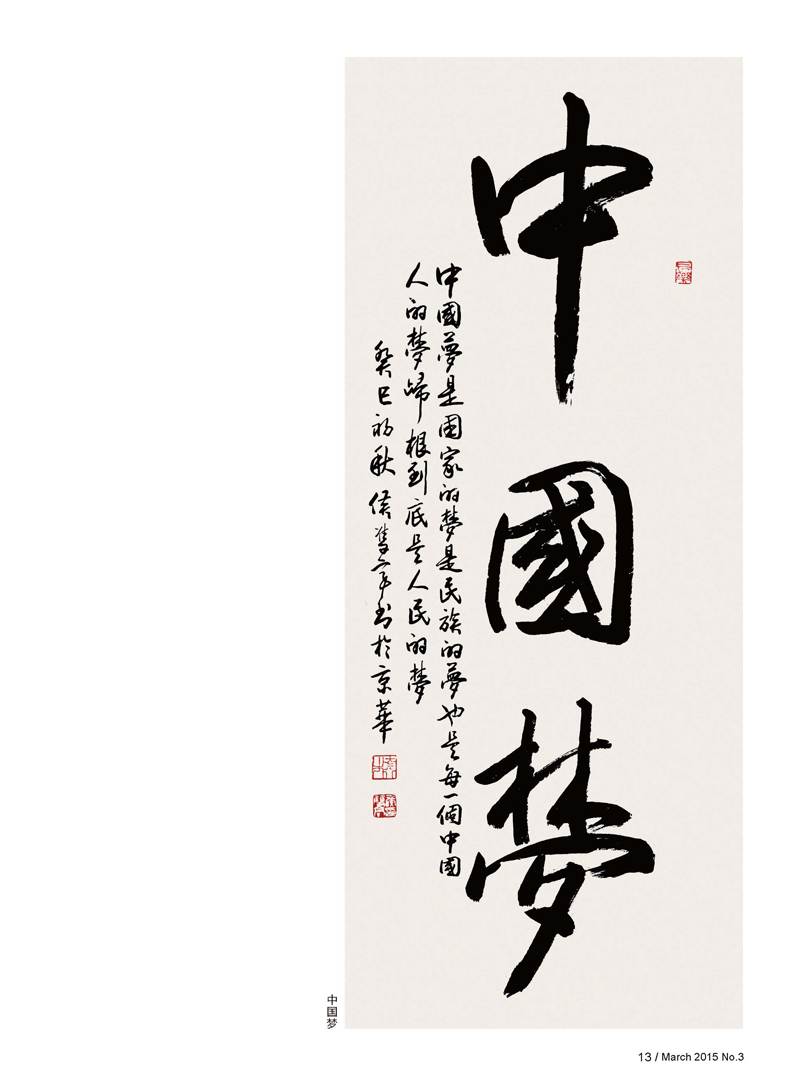 中國梦
中國夢是国家的梦是民族的夢也是每一個中國
人的梦歸根到底是人民的梦
癸巳初秋 侯 书於京華
中国梦
13 / March 2015 No.3